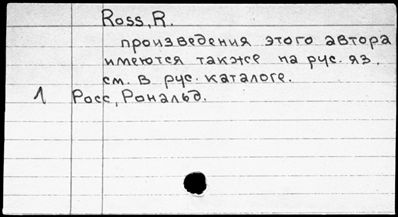 Ross, R.
произведения этого автора
имеются также на рус. яз.
см. в рус. каталоге.
1 Росс, Рональд.